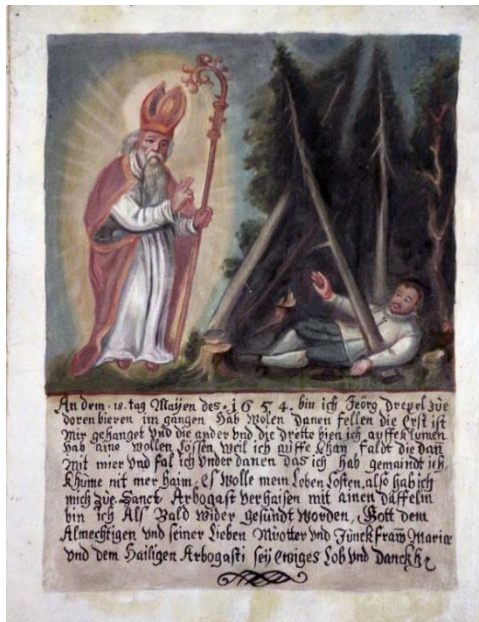 An dem .18. tag Mayen des .1654. bin ich Jeörg Drexel zůe
dorenbieren im gangen Hab wolen Danen fellen die Erst ist
Mir gehanget Vnd die ander vnd die drette bien ich auffekumen
Hab aine wollen Lössen weil ich auffe Khan faldt die dan
Mit mier vnd fal ich vnder danen das ich hab gemaindt ich
Khüme nit mer haim, es wolle mein Leben Costen, also hab ich
mich zůe Sanct Arbogast verhaisen mit ainen däffelin
bin ich Als Bald wider gesundt worden, Gott dem
Almechtigen vnd seiner Lieben Muotter vnd Junckfraw Maria
vnd dem Hailigen Arbogasti seÿ ewiges Lob vnd Danckh